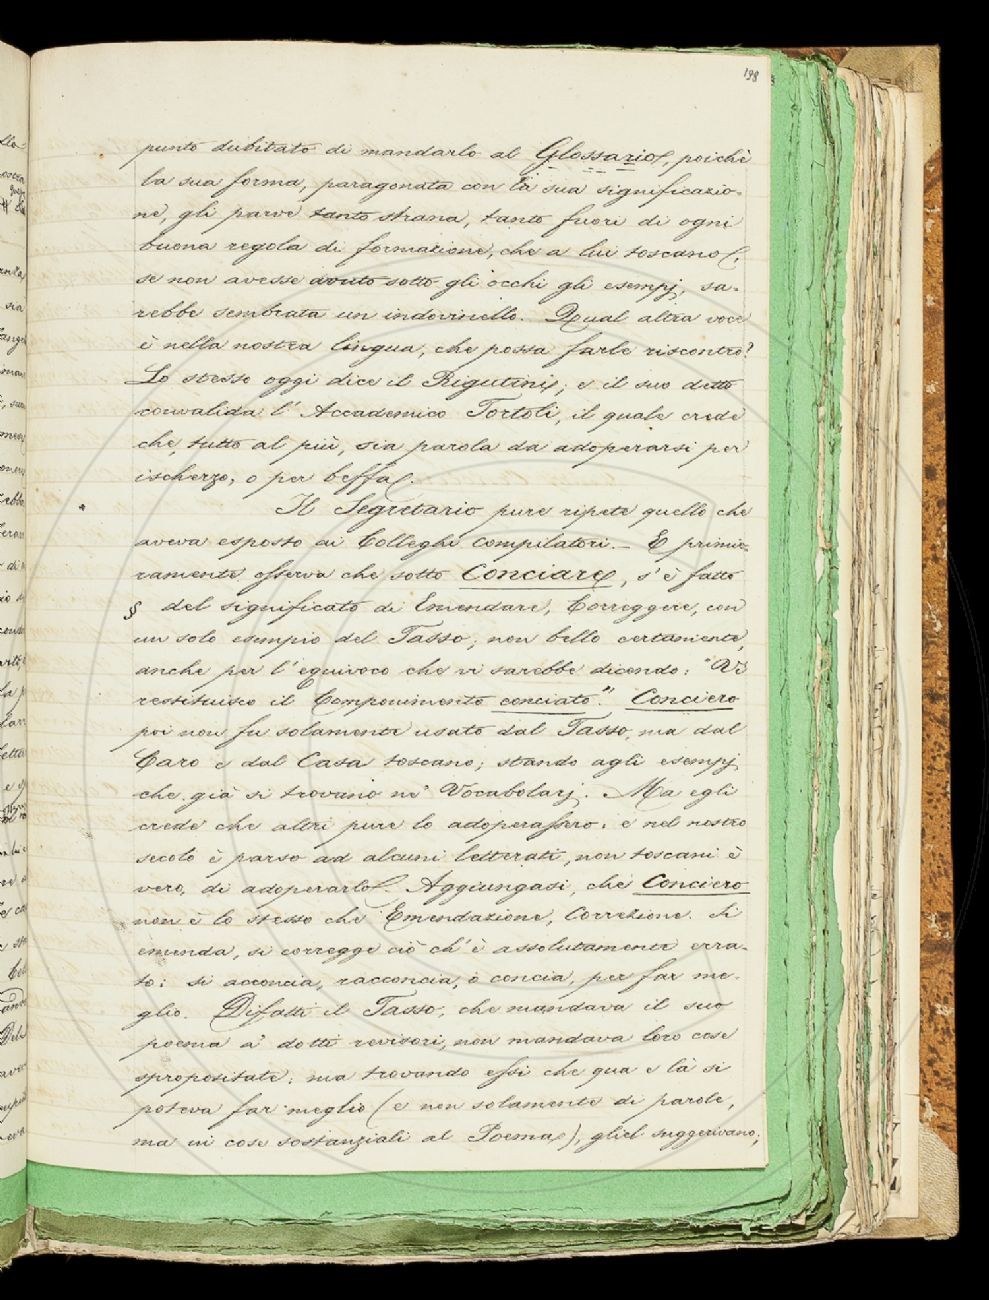 198
punto dubitato di mandarlo al Glossario, poichè
la sua forma, paragonata con la sua significazio-
ne, gli parve tanto strana, tanto fuori di ogni
buona regola di formazione, che a lui toscano,
se non avesse avuto sotto gli occhi gli esempj, sa-
rebbe sembrata un indovinello. Qual altra voce
è nella nostra lingua, che possa farle riscontro?
Lo stesso oggi dice il Rigutini; e il suo detto
convalida l'Accademico Tortoli, il quale crede
che, tutto al più, sia parola da adoperarsi per
ischerzo, o per beffa.
Il Segretario pure ripete quello che
aveva esposto ai Colleghi compilatori. – E primie-
ramente osserva che sotto Conciare, s'è fatto
§ del significato di Emendare, Correggere, con
un solo esempio del Tasso, non bello certamente,
anche per l'equivoco che vi sarebbe dicendo: "Vi
restituisco il Componimento conciato". Conciero
poi non fu solamente usato dal Tasso, ma dal
Caro e dal Casa toscano; stando agli esempj
che già si trovano ne' Vocabolarj. Ma egli
crede che altri pure lo adoperassero; e nel nostro
secolo è parso ad alcuni letterati, non toscani è
vero, di adoperarlo. Aggiungasi, che Conciero
non è lo stesso che Emendazione, Correzione. Si
emenda, si corregge ciò ch'è assolutamente erra-
to: si acconcia, racconcia, o concia, per far me-
glio. Difatti il Tasso, che mandava il suo
poema a' dotti revisori, non mandava loro cose
spropositate; ma trovando essi che qua e là si
poteva far meglio (e non solamente di parole,
ma in cose sostanziali al Poema), gliel suggerivano;